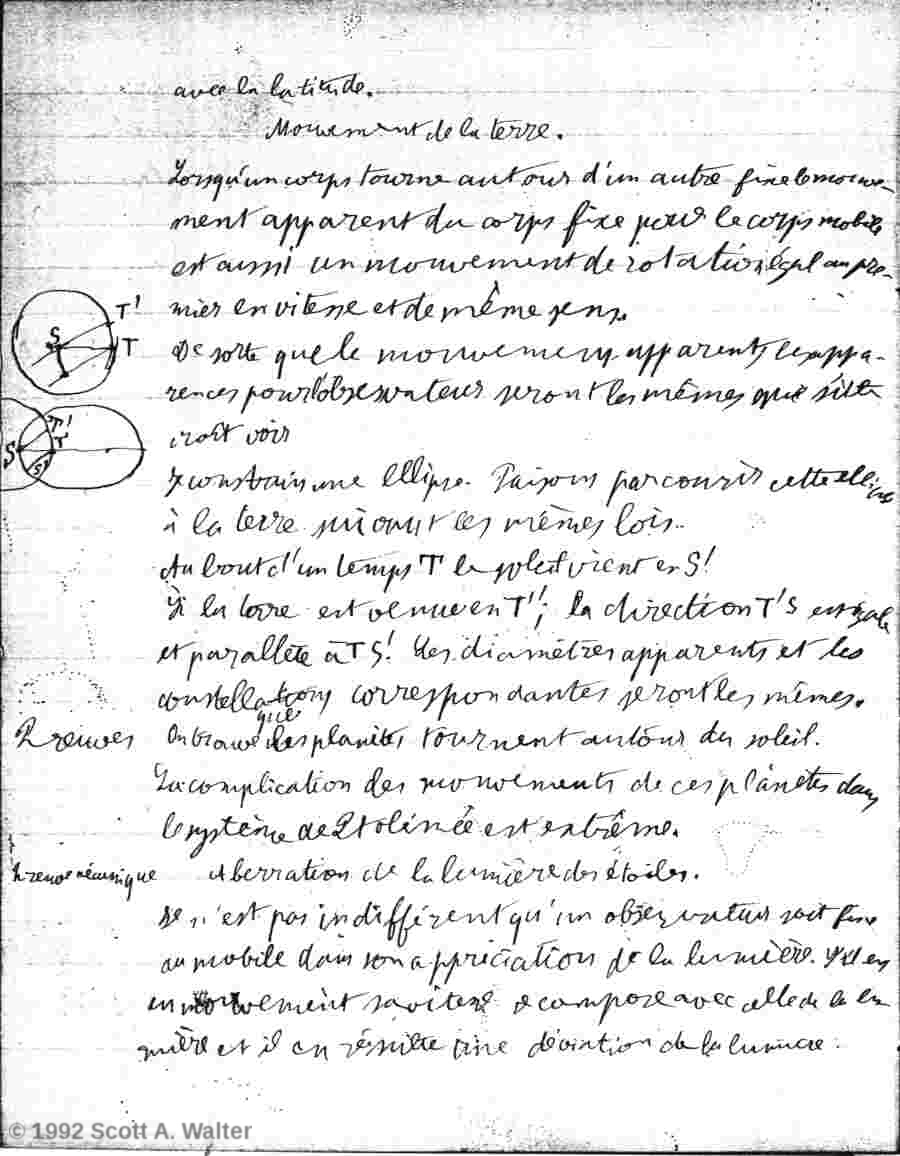 avec la latitude.
Mouvement de la terre.
Lorsqu'un corps tourne autour d'un autre fixe le mouve-
ment apparent du corps fixe pour le corps mobile
est aussi un mouvement de rotation égal au pre-
mier en vitesse et de même sens.
T'
S
T
De sorte que le mouvement apparent, les appa-
rences pour l'observateur seront les mêmes que si
T'
T
S
S'
croit voir
Je construis une ellipse. Faisons parcourir cette ellipse
à la terre suivant les mêmes lois.
Au bout d'un temps T le soleil vient en S'
Si la terre est venue en T', la direction T'S est égale
et parallèle à TS'. Les diamètres apparents et les
constellations correspondantes seront les mêmes.
Preuves
On trouve que les planètes tournent autour du soleil.
La complication des mouvements de ces planètes dans
le système de Ptolémée est extrême.
Preuve mécanique
Aberration de la lumière des étoiles.
Ce n'est pas indifférent qu'un observateur soit fixe
au mobile dans son appréciation de la lumière. S'il est
en mouvement sa vitesse se compose avec celle de la lu-
mière et il en résulte une déviation de la lumière.
© 1992 Scott A. Walter